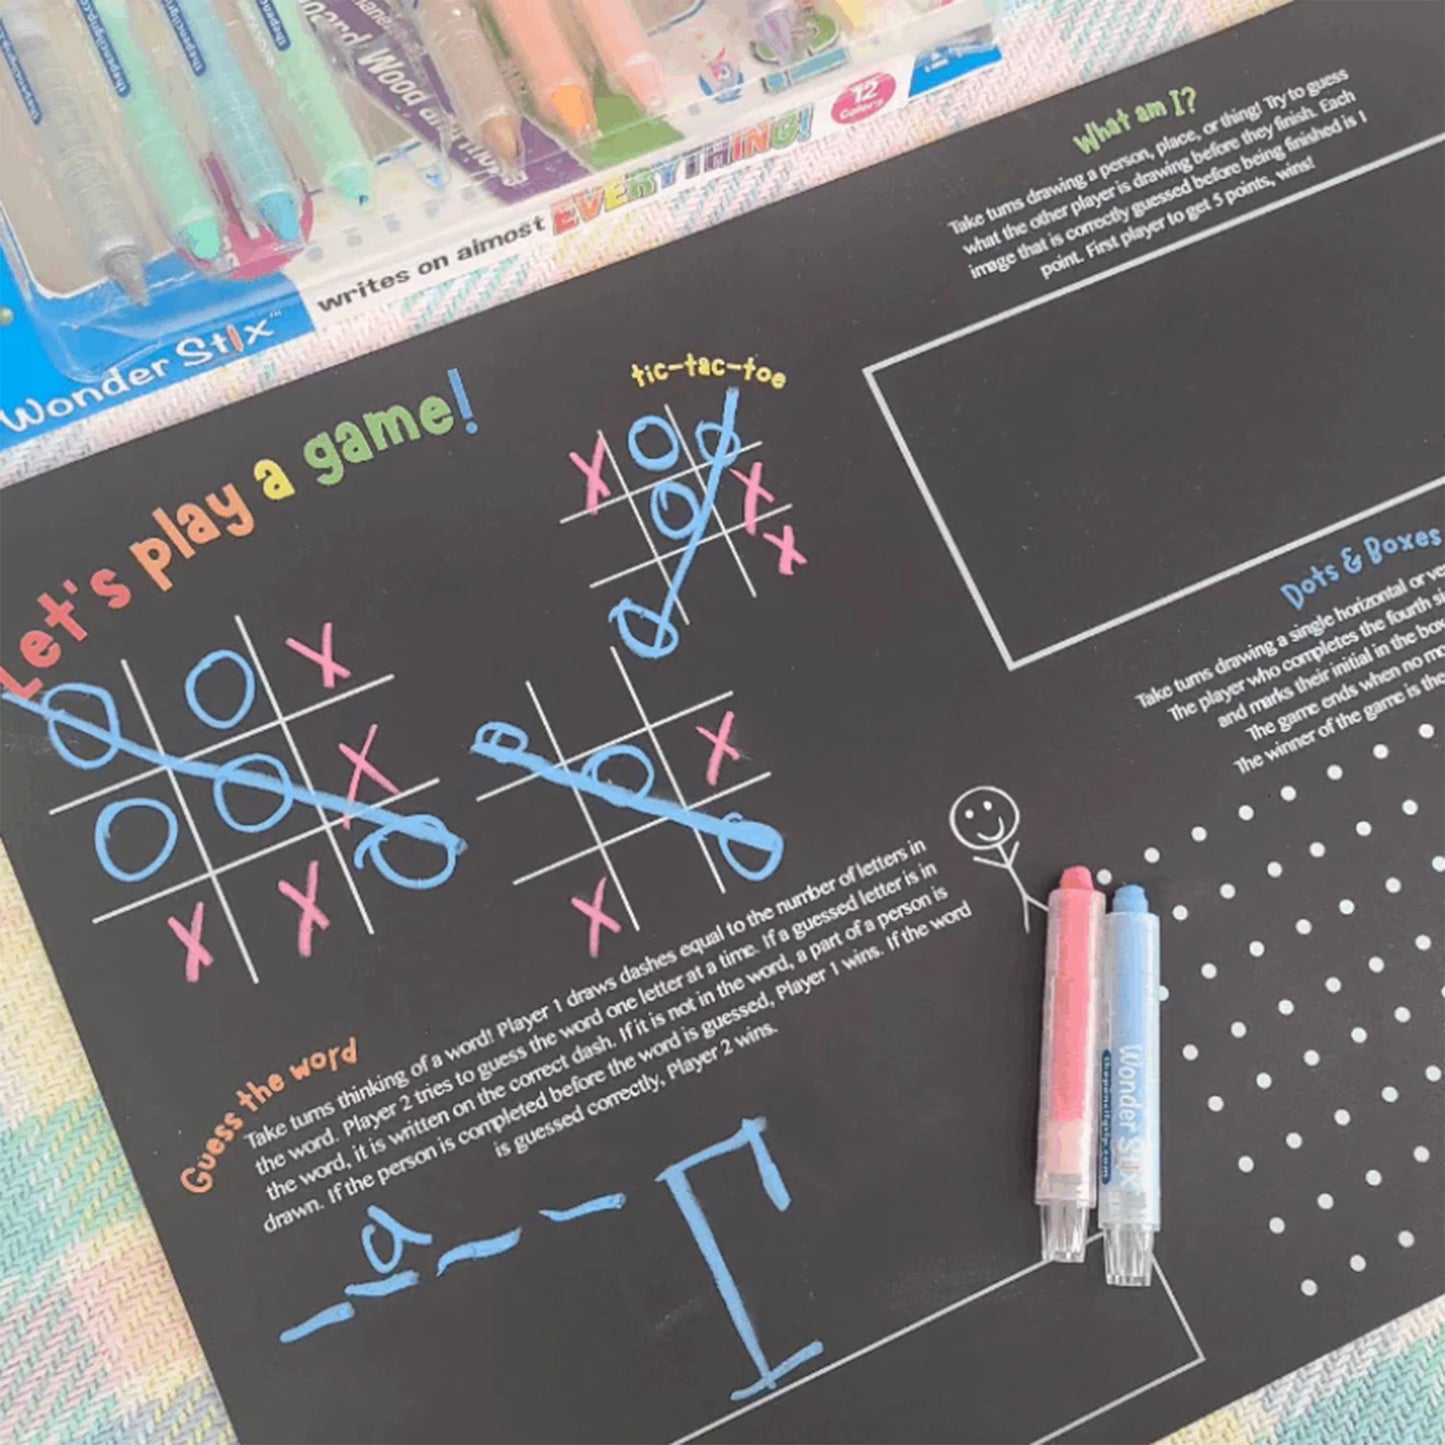 Board, Wood and
12
Colors
writes on almost EVERYTHING!
Wonder Stix™
Let's play a game!
tic-tac-toe
X O O
O X
O X
O O X
O O X
X X O
O
O X
X O
What am I?
Take turns drawing a person, place, or thing! Try to guess
what the other player is drawing before they finish. Each
image that is correctly guessed before being finished is 1
point. First player to get 5 points, wins!
Dots & Boxes
Take turns drawing a single horizontal or
The player who completes the fourth
and marks their initial in the
The game ends when no
The winner of the game is the
Guess the word
Take turns thinking of a word! Player 1 draws dashes equal to the number of letters in
the word. Player 2 tries to guess the word one letter at a time. If a guessed letter is in
the word, it is written on the correct dash. If it is not in the word, a part of a person is
drawn. If the person is completed before the word is guessed, Player 1 wins. If the word
is guessed correctly, Player 2 wins.
a
Wonder Stix
thepencilgrip.com